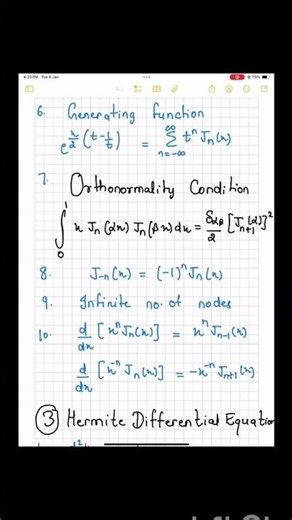 4:23 PM Tue 6 Jan
75%
6. Generating Function
e^{x/2 (t-1/t)} = ∑_{n=-∞}^{∞} t^n J_n(x)
7. Orthonormality Condition
∫_0^1 x J_n(αx) J_n(βx) dx = δ_{αβ}/2 [J_{n+1}(α)]^2
8. J_{-n}(x) = (-1)^n J_n(x)
9. Infinite no. of nodes
10. d/dx [x^n J_n(x)] = x^n J_{n-1}(x)
d/dx [x^{-n} J_n(x)] = -x^{-n} J_{n+1}(x)
③ Hermite Differential Equation